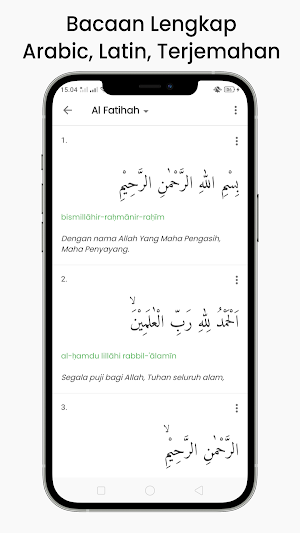 Bacaan Lengkap
Arabic, Latin, Terjemahan
15.04
Al Fatihah
1.
بِسْمِ اللّٰهِ الرَّحْمٰنِ الرَّحِيْمِ
bismillāhir-raḥmānir-raḥīm
Dengan nama Allah Yang Maha Pengasih,
Maha Penyayang.
2.
اَلْحَمْدُ لِلّٰهِ رَبِّ الْعٰلَمِيْنَۙ
al-ḥamdu lillāhi rabbil-'ālamīn
Segala puji bagi Allah, Tuhan seluruh alam,
3.
الرَّحْمٰنِ الرَّحِيْمِۙ